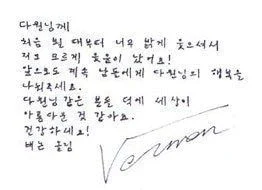 다원님께
처음 뵐 때부터 너무 밝게 웃으셔서
저도 모르게 웃음이 났어요!
앞으로도 계속 남들에게 다원님의 행복을
나눠주세요.
다원님 같은 분들 덕에 세상이
아름다운 것 같아요.
건강하세요!
버논 올림
Vernon